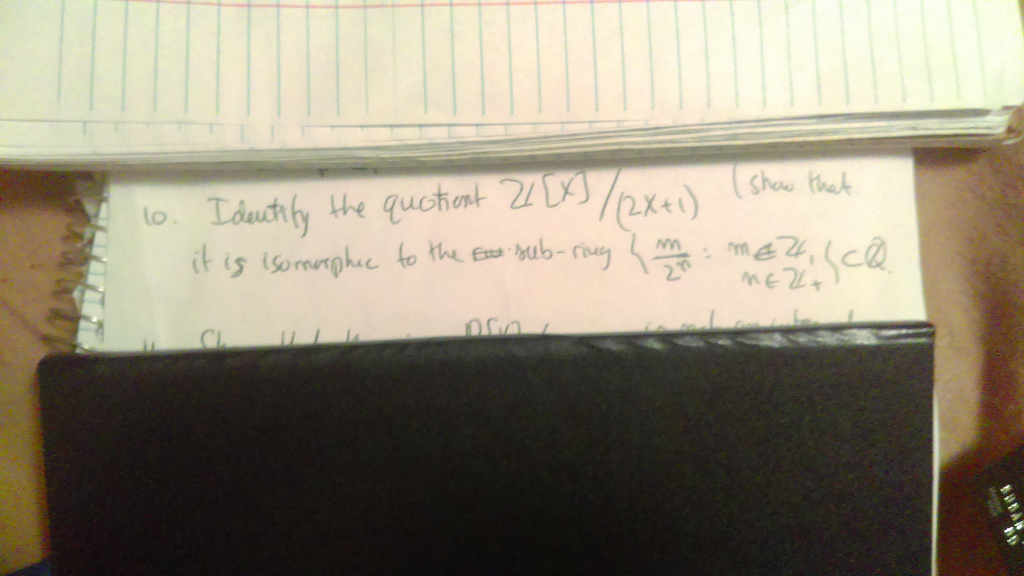 10. Identify the quotient ℤ[X]/(2X+1) (show that
it is isomorphic to the sub-ring { m/2ⁿ : m ∈ ℤ, n ∈ ℤ₊ } ⊂ ℚ.